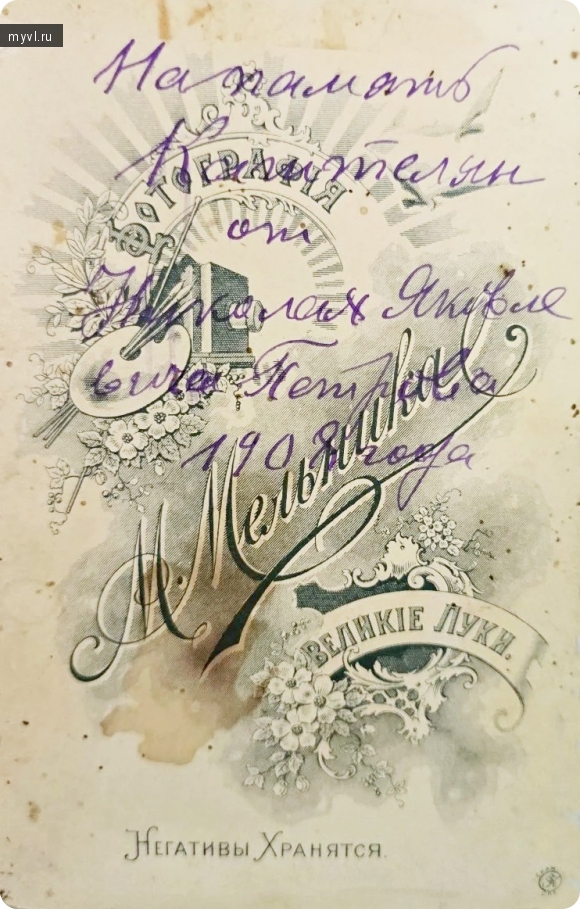 myvl.ru
На память
от
Николая Яковле
вича Петрова
1908 года
ФОТОГРАФІЯ
М. Мельника
ВЕЛИКІЕ ЛУКИ.
НЕГАТИВЫ ХРАНЯТСЯ.